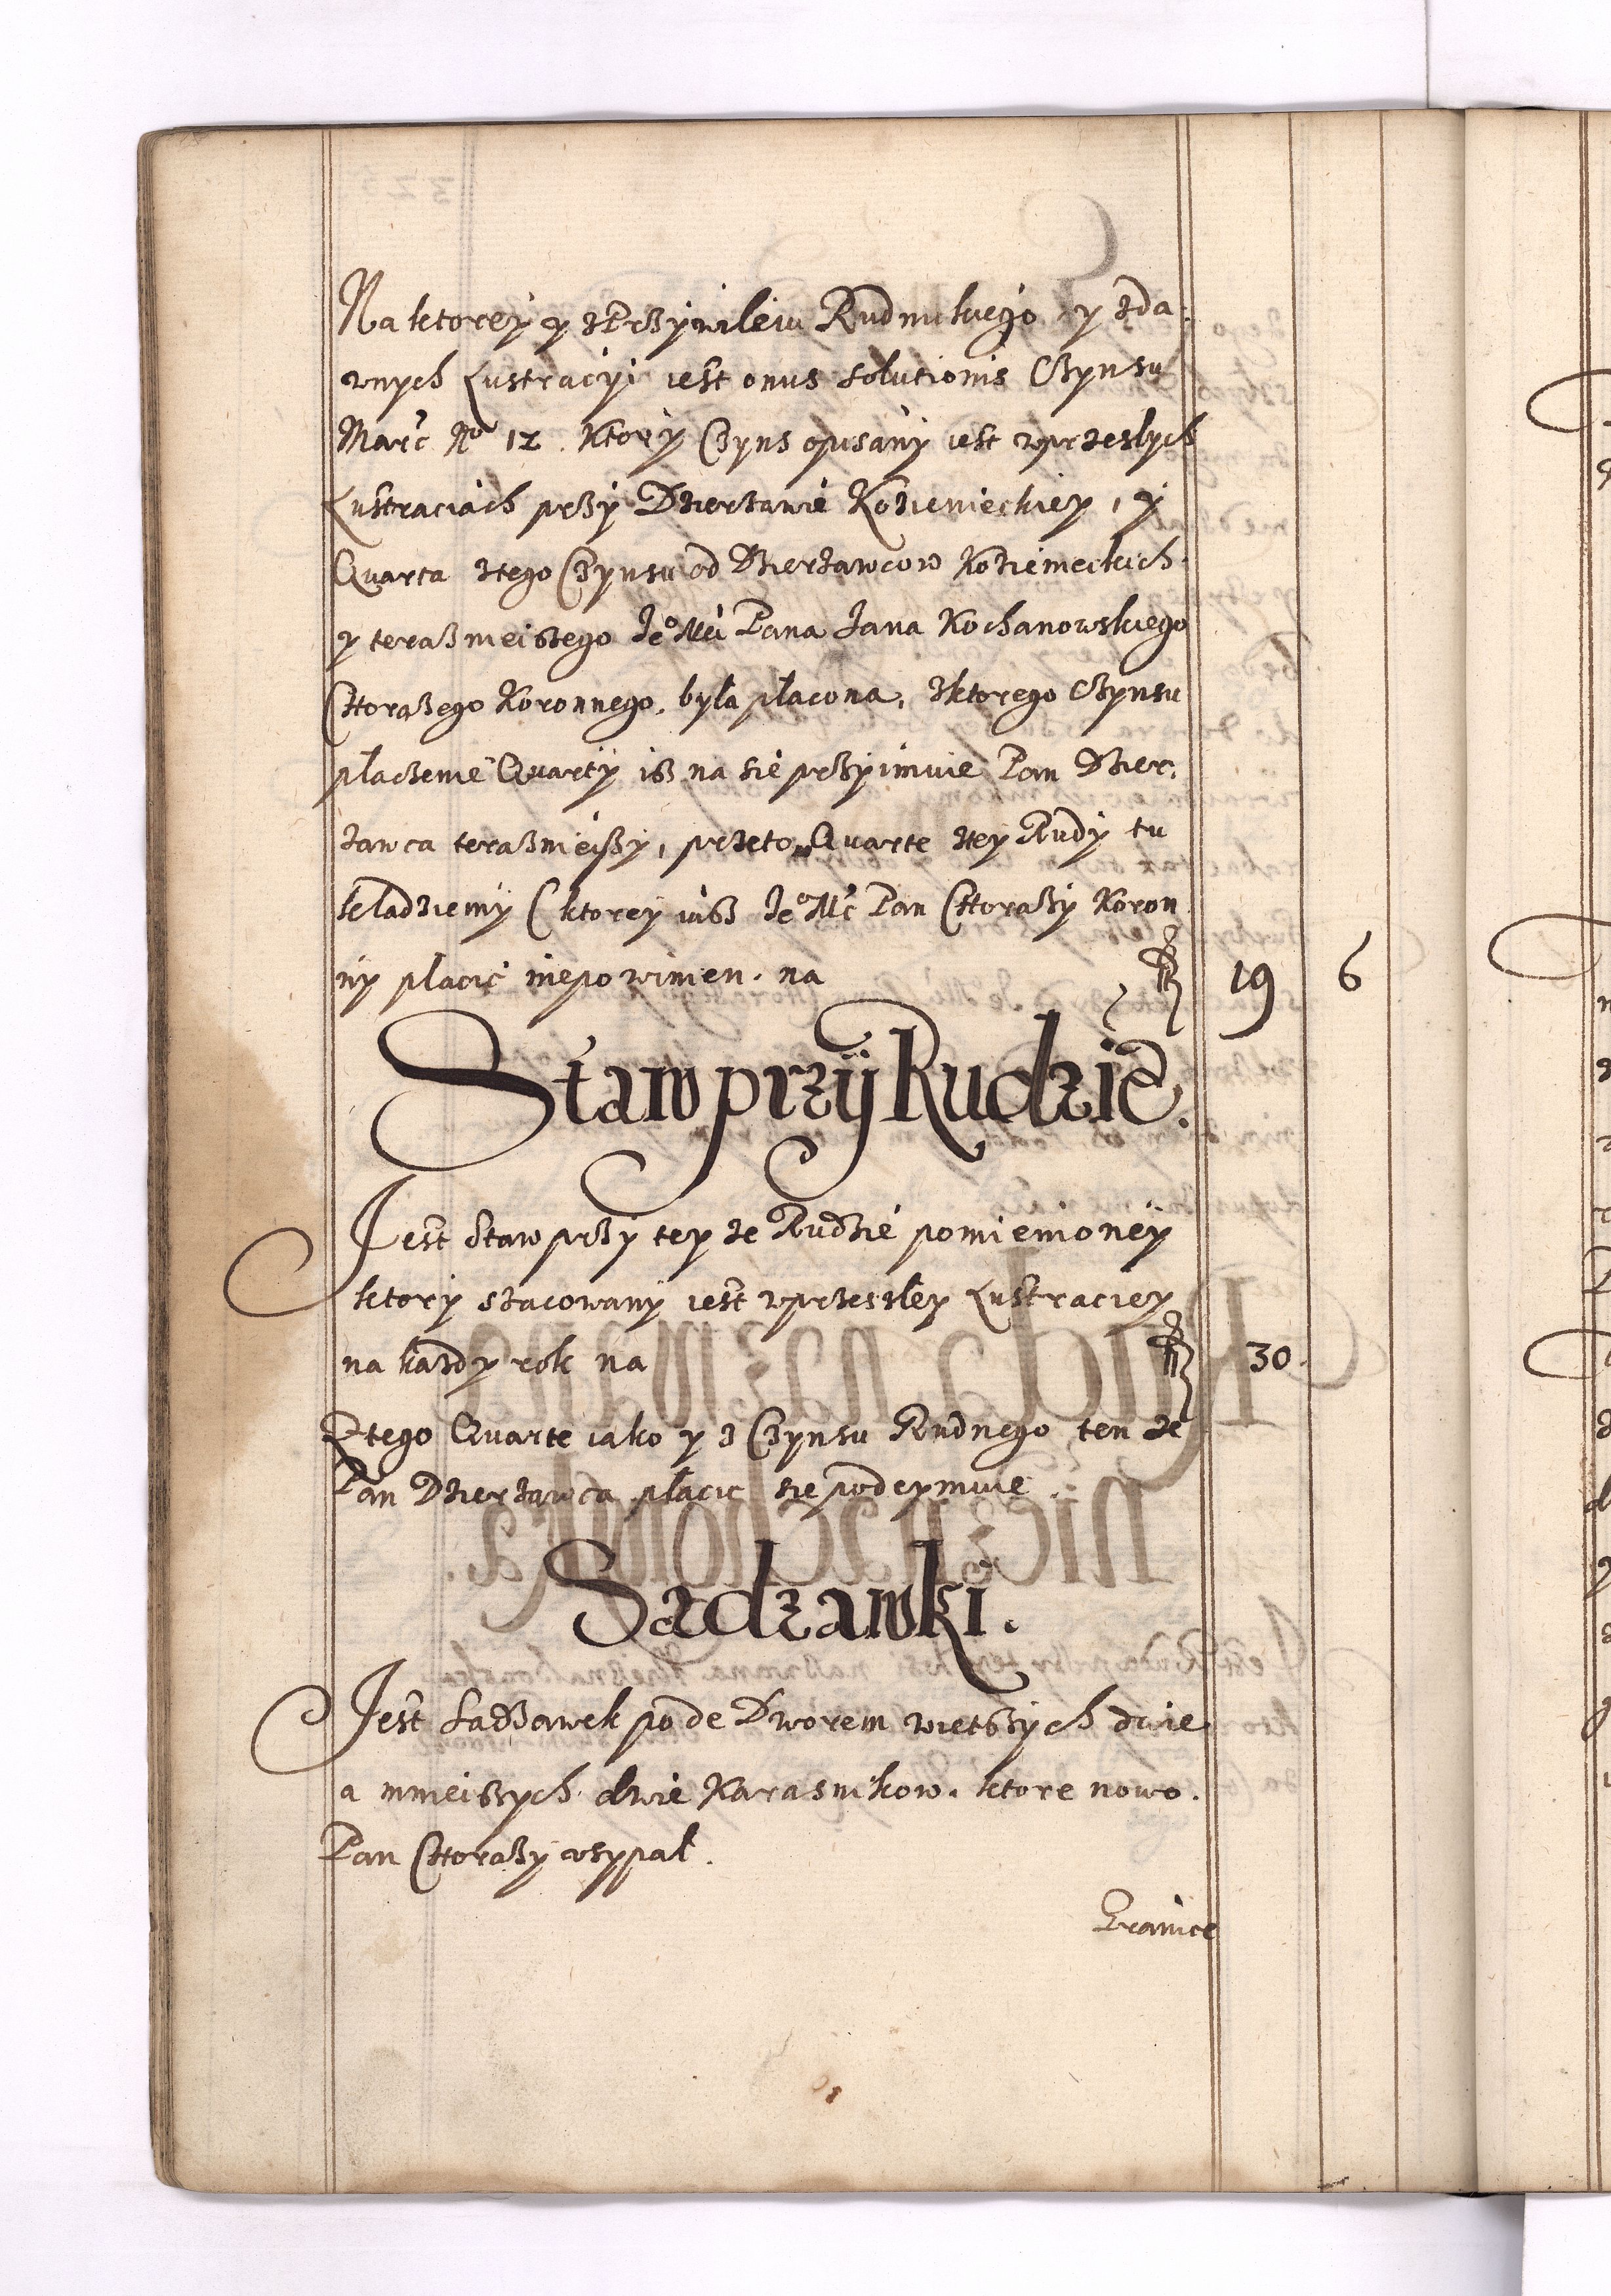 Na ktorey y z Przywileiu Rudnickiego y zda:
wnych Lustracyi iest onus solutionis Czynsu
Marc No 12. Ktory Czyns opisany iest wprzeszlych
Lustraciach przy Dzierzawie Kozienieckiey, y
Quarta ztego Czynsu od Dzierżawcow Kozienieckich.
y teraznieiszego Jeo Mci Pana Jana Kochanowskiego
Chorążego Koronnego. była płacona, zktorego Czynsu
płaczenie Quarty isz na sie przyimuie Pan Dzier,
zawca teraznieiszy, przeto Quarte ztey Rudy tu
kładziemy (ktorey iusz Jeo Mc Pan Chorąży Koron
ny płacic niepowinien. na fl 19 6
Staw przy Rudzie.
Jest Staw przy tey ze Rudzie pomienioney
ktory szacowany iest wprzeszłey Lustraciey
na kazdy rok na fl 30.
Ztego Quarte iako y z Czynsu Rudnego ten ze
Pan Dzierzawca płacic sie podeymuie.
Sadzawki.
Jest Sadzawek pode Dworem wietszych dwie
a mnieiszych dwie Karasnikow. ktore nowo.
Pan Chorąży wsypał.
Granice